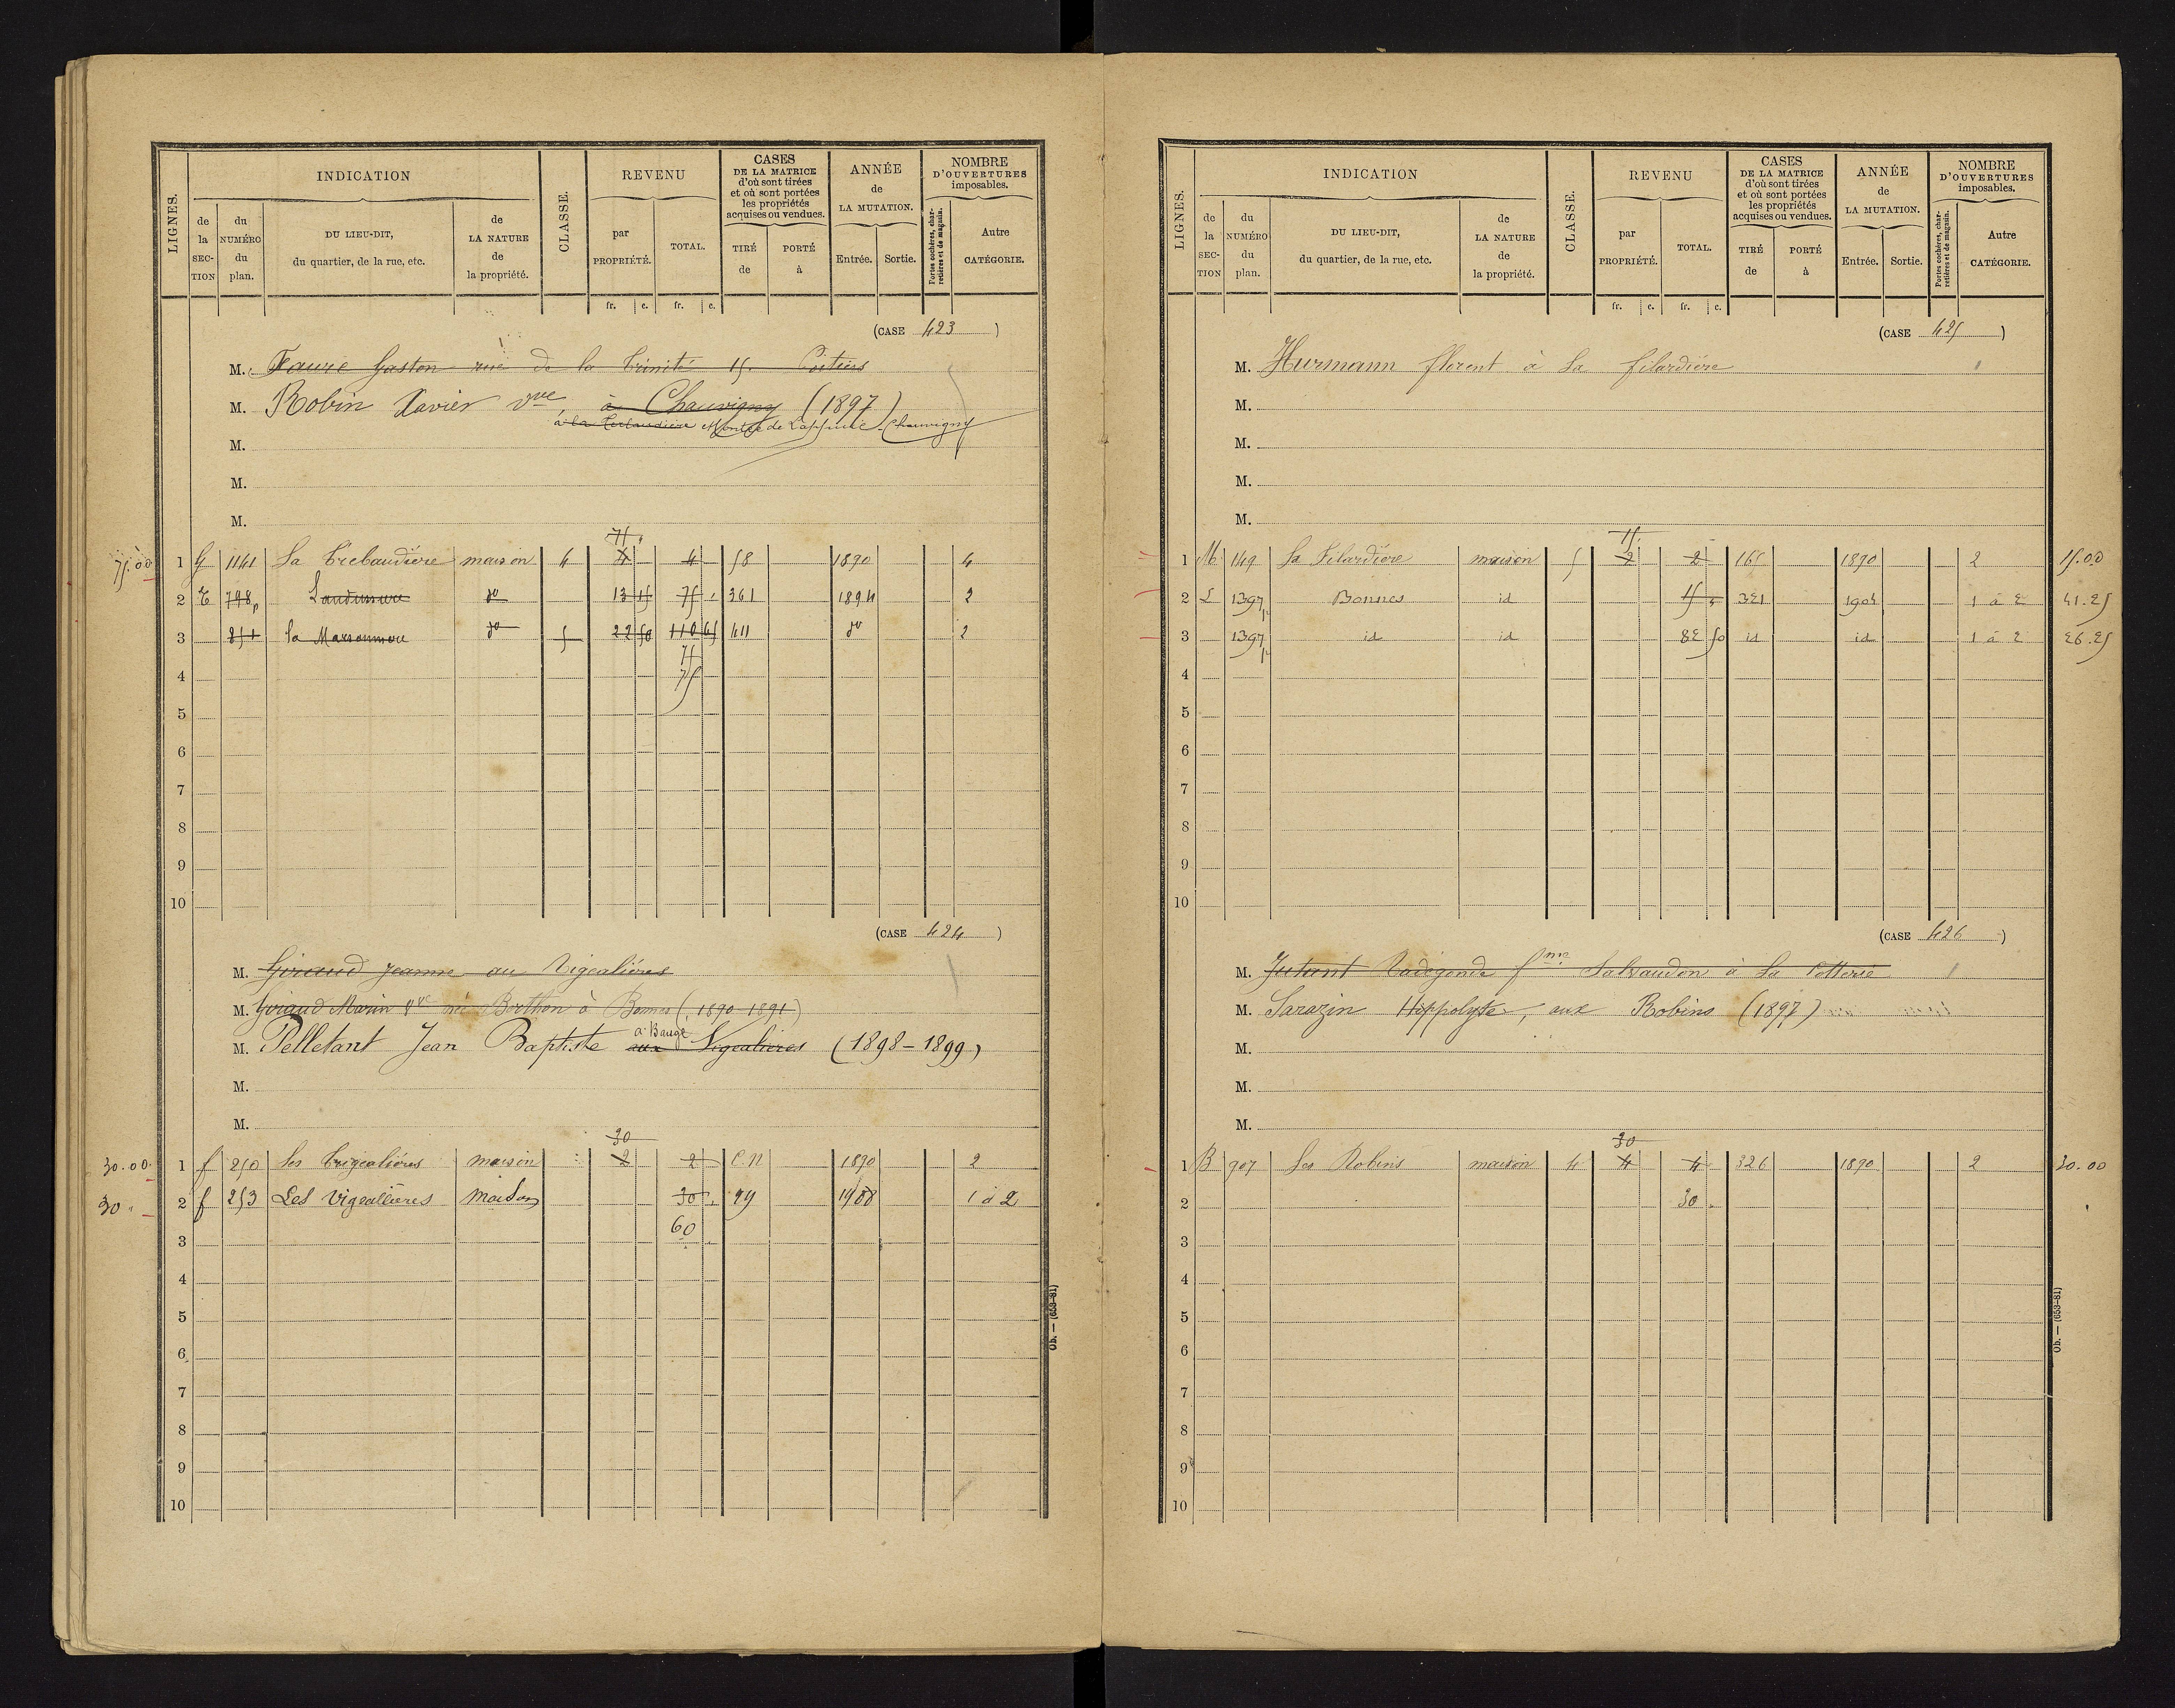 LIGNES. INDICATION CLASSE. REVENU CASES DE LA MATRICE d'où sont tirées et où sont portées les propriétés acquises ou vendues. ANNÉE de LA MUTATION. NOMBRE D'OUVERTURES imposables.
de la SECTION du NUMÉRO du plan. DU LIEU-DIT, du quartier, de la rue, etc. de LA NATURE de la propriété. par PROPRIÉTÉ. TOTAL. TIRÉ de PORTÉ à Entrée. Sortie. Portes cochères, charretières et de magasin. Autre CATÉGORIE.
fr. c. fr. c.
(CASE 423)
M. Faure Gaston rue de la Trinité 15. Poitiers
M. Robin Xavier vve à Chauvigny (1897)
Chauvigny
M.
M.
M.
75
75.00 1 G 1141 La Trebaudière maison 4 4 4 58 1890 4
2 E 798p do 13 15 75 361 1894 2
3 851 do 5 22 50 110 65 411 do 2
75
4 75
5
6
7
8
9
10
(CASE 424)
M. Giraud Jeanne au Vigealières
M. Giraud Marin Vve née Berthon à Bonnes (1890-1891)
à Bauge
M. Pelletant Jean Baptiste aux Vigealières (1898-1899)
M.
M.
30
30.00 1 f 250 Les Vrigealières maison 2 2 C.N 1890 2
30 2 f 253 Les Vigeallieres Maison 30 1 à 2
60
3
4
5
6
7
8
9
10
Ob. — (653-81)
LIGNES. INDICATION CLASSE. REVENU CASES DE LA MATRICE d'où sont tirées et où sont portées les propriétés acquises ou vendues. ANNÉE de LA MUTATION. NOMBRE D'OUVERTURES imposables.
de la SECTION du NUMÉRO du plan. DU LIEU-DIT, du quartier, de la rue, etc. de LA NATURE de la propriété. par PROPRIÉTÉ. TOTAL. TIRÉ de PORTÉ à Entrée. Sortie. Portes cochères, charretières et de magasin. Autre CATÉGORIE.
fr. c. fr. c.
(CASE 425)
M. Hurmann florent à La filardière
M.
M.
M.
M.
15
1 M 149 La Filardière maison 5 2 2 165 1890 2 15.00
2 L 1397p Bonnes id 15 321 1904 1 à 2 41.25
3 1397p id id 82 50 id id 1 à 2 26.25
4
5
6
7
8
9
10
(CASE 426)
M. Jutant Radegonde fme Salvaudon à La Potterie
M. Sarazin Hippolyte, aux Robins (1897)
M.
M.
M.
30
1 B 907 Les Robins maison 4 4 4 326 1890 2 30.00
2 30
3
4
5
6
7
8
9
10
Ob. — (653-81)